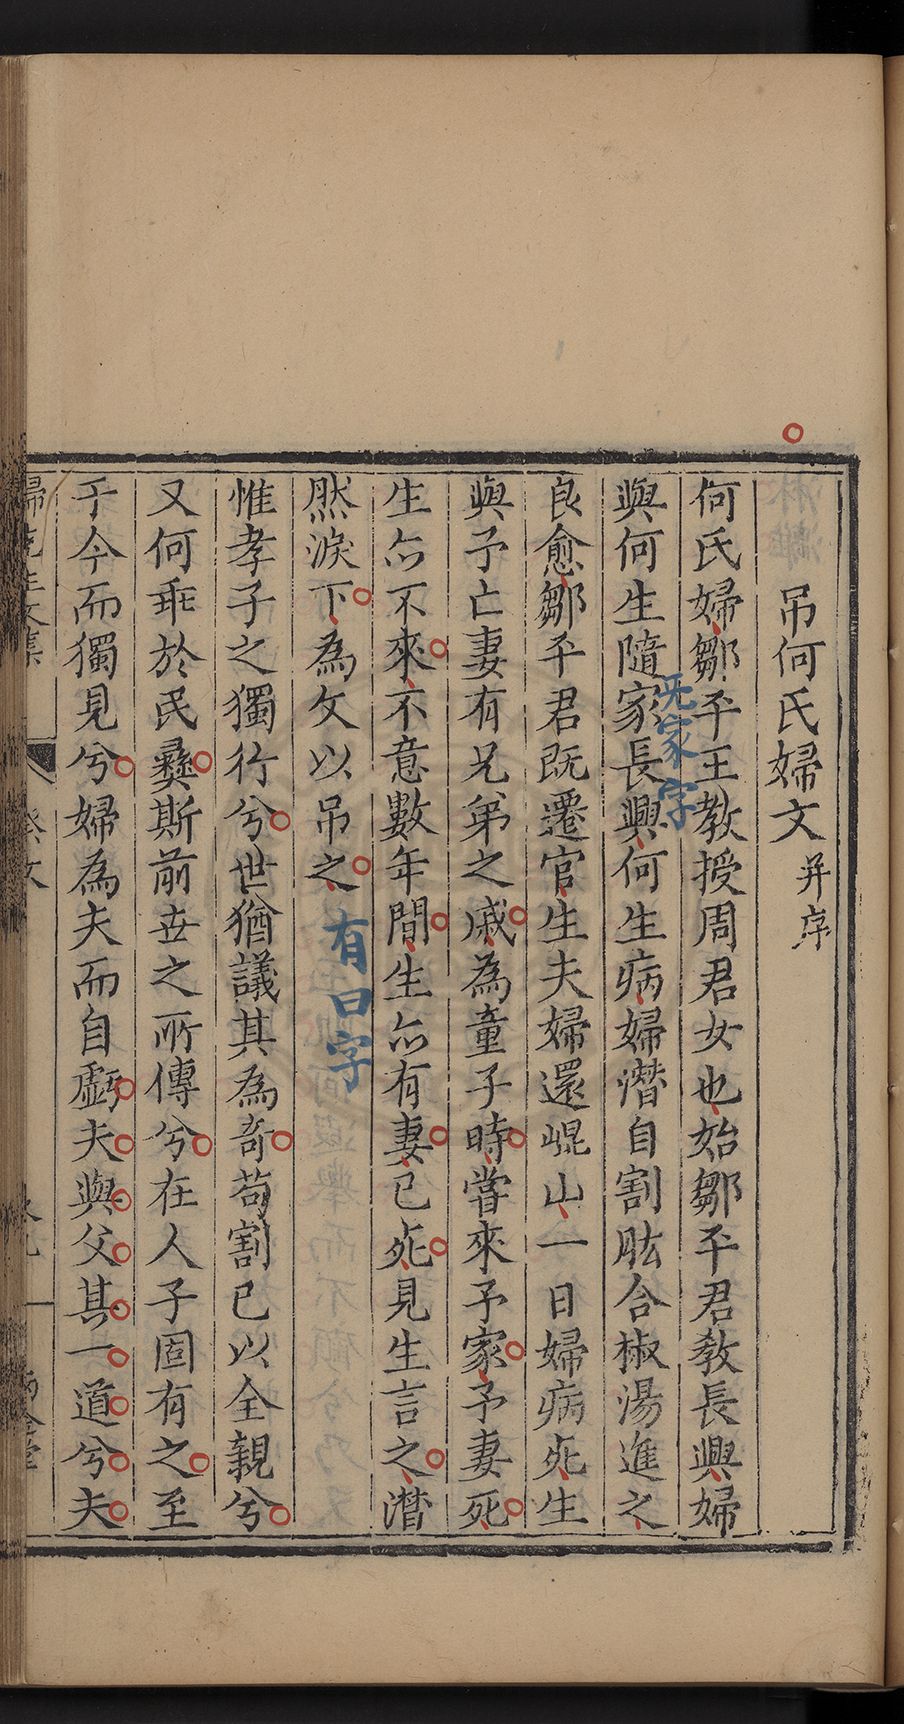 吊何氏婦文并序
何氏婦鄒平王教授周君女也始鄒平君教長興婦
與何生隨家長興何生病婦潛自割肱合椒湯進之
良愈鄒平君既遷官生夫婦還崐山一日婦病死生
與予亡妻有兄弟之戚為童子時嘗來予家予妻死
生亦不來不意數年間生亦有妻已死見生言之潸
然淚下為文以吊之
惟孝子之獨行兮世猶議其為奇苟割已以全親兮
又何乖於民彝斯前世之所傳兮在人子固有之至
于今而獨見兮婦為夫而自虧夫與父其一道兮夫
无家字
有曰字